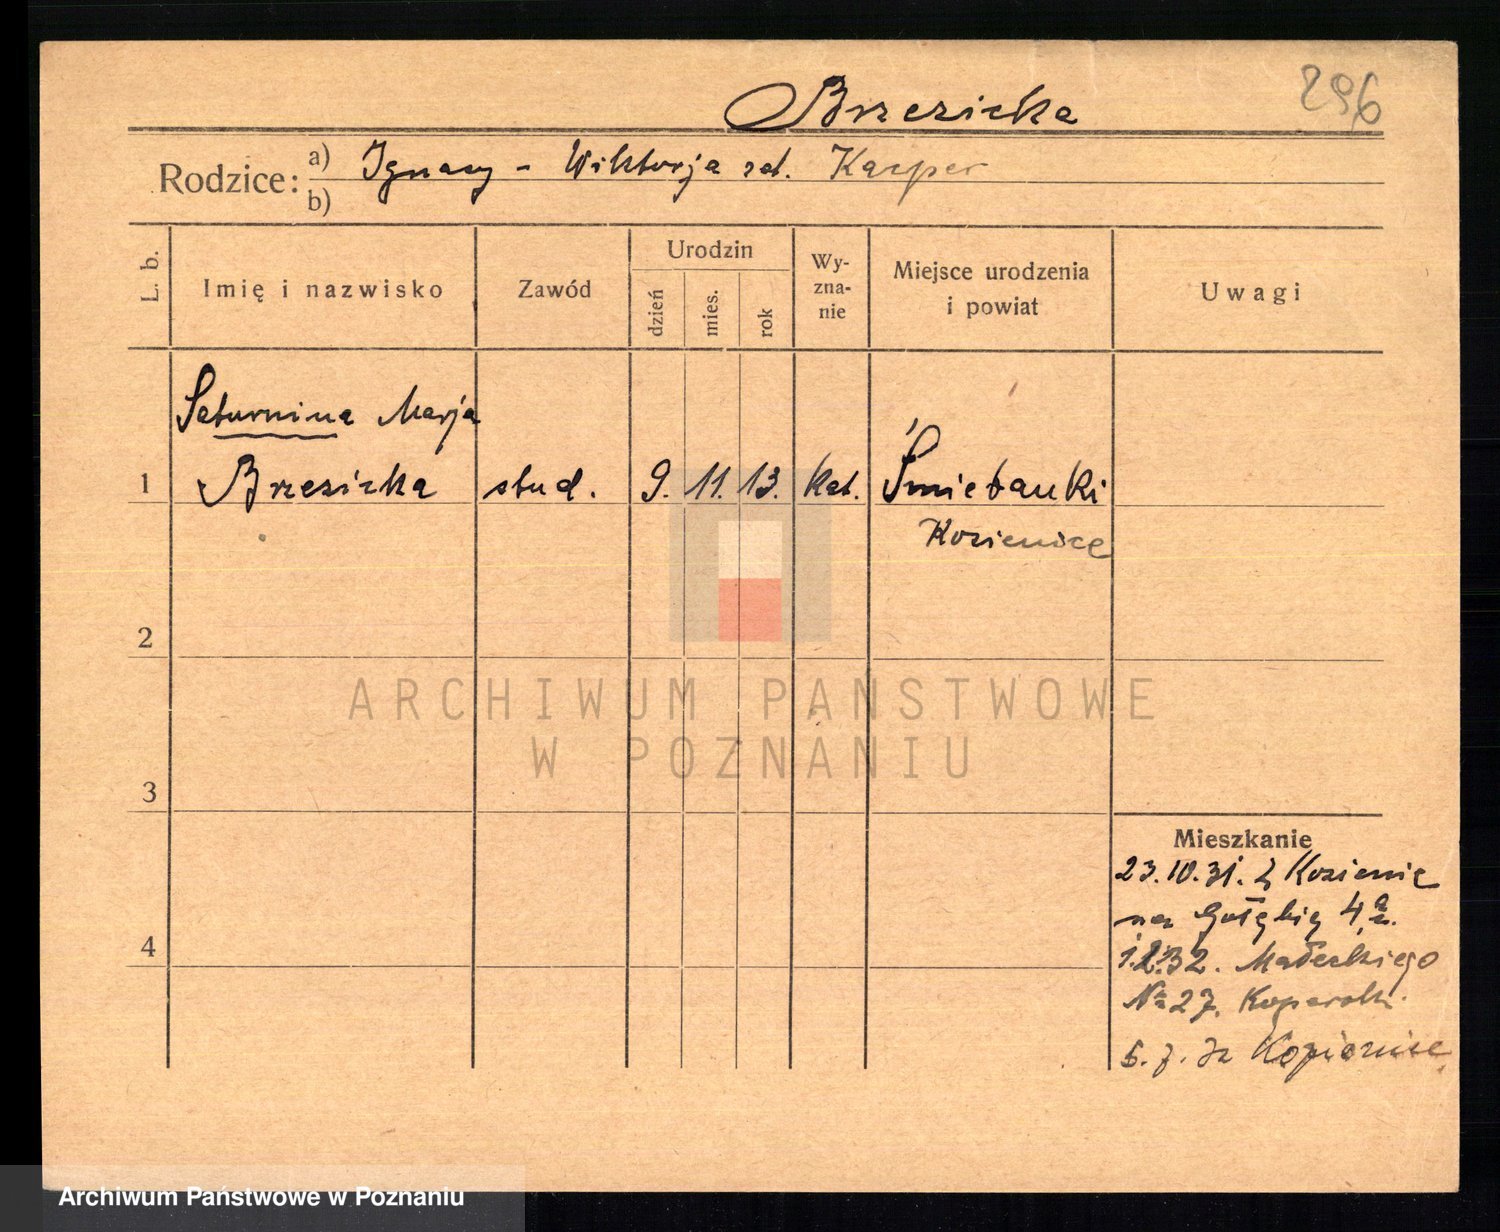 Brzezicka
296
Rodzice: a) Ignacy - Wiktorja zd. Kacper
b)
L. b.
Imię i nazwisko
Zawód
Urodzin
dzień
mies.
rok
Wy-
zna-
nie
Miejsce urodzenia
i powiat
Uwagi
Saturnina Marja
1 Brzezicka stud. 9. 11. 13. kat. Śmietanki
Kozienice
2
3
4
Mieszkanie
23.10.31. z Kozienic
na Gołębią 4
1.2.32. Małeckiego
№ 27.
5.7. do Kozienice
ARCHIWUM PAŃSTWOWE
W POZNANIU
Archiwum Państwowe w Poznaniu